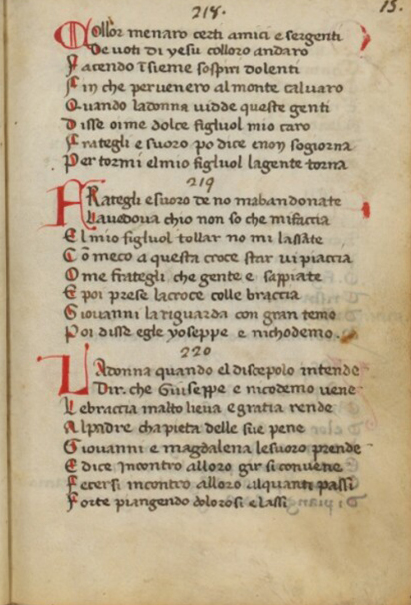 218.
15.
Collor menaro certi amici e sergenti
De voti di yesu colloro andaro
Facendo i͂sieme sospiri dolenti
Fin che pervenero al monte calvaro
Quando ladonna vidde queste genti
Disse oime dolce figluol mio caro
Frategli e suoro po dice enon sogiorna
Per tormi elmio figluol lagente torna
219
Frategli esuoro de no mabandonate
Lavedova chio non so che mifaccia
El mio figluol tollar no mi lassate
Cō meco a questa croce star vi piaccia
Ome frategli che gente e sappiate
E poi prese lacroce colle braccia
Giovanni la riguarda con gran teme
Poi disse egle yoseppe e nichodemo.
220
Ladonna quando el discepolo intende
Dir. che Giuseppe e nicodemo vene
Lebraccia inalto lieva egratia rende
Alpadre cha pieta delle sue pene
Giovanni e magdalena lesuoro prende
E dice Incontro alloro gir si convene
Fecersi incontro alloro alquanti passi
Forte piangendo dolorosi elassi